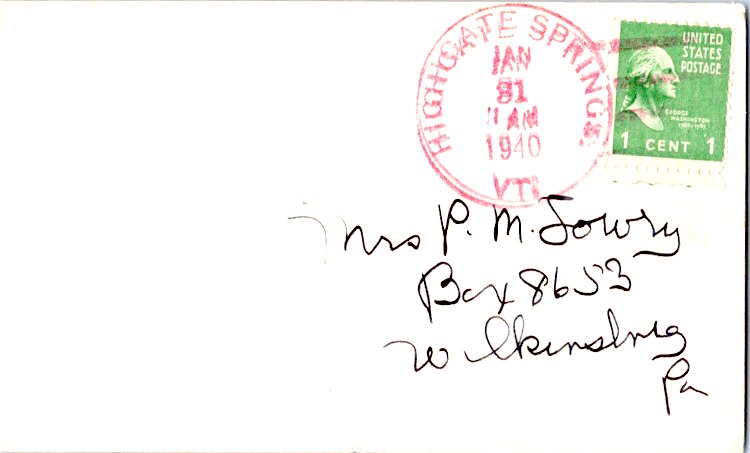 HIGHGATE SPRINGS
JAN
31
11 AM
1940
VT.
UNITED
STATES
POSTAGE
GEORGE
WASHINGTON
1 CENT 1
Mrs P. M. Lowry
Box 8653
Wilkinsburg
Pa